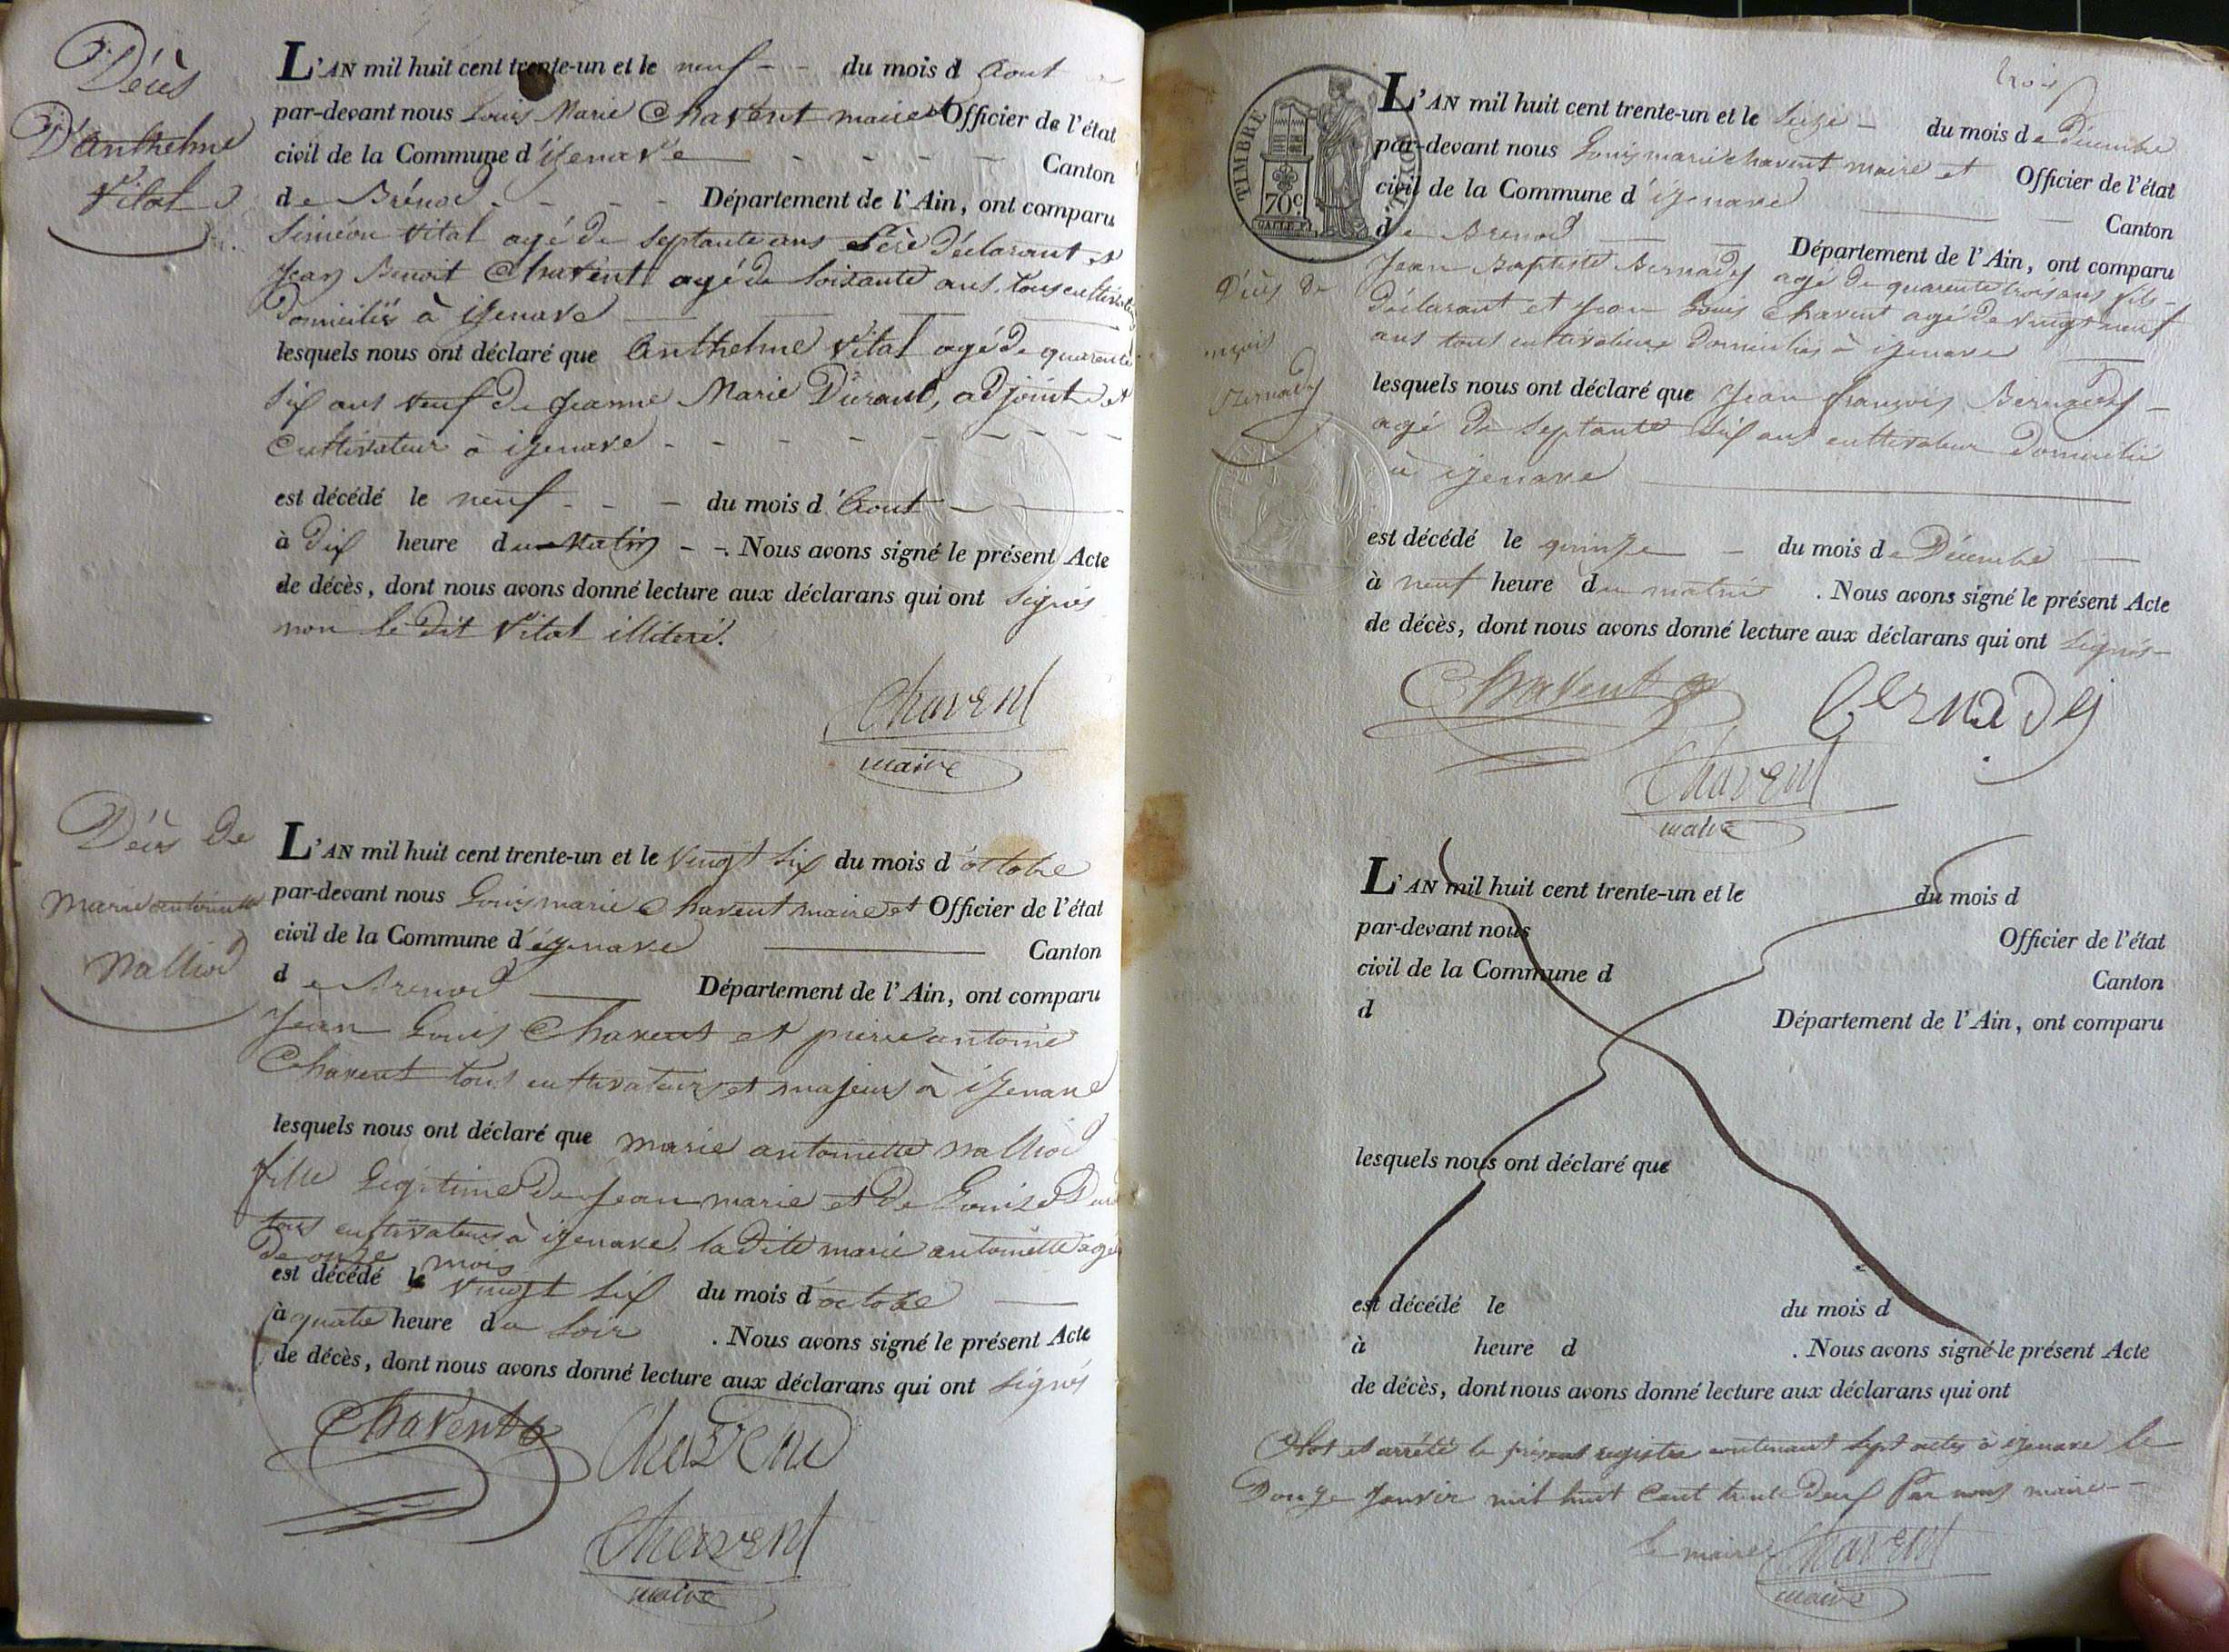 Décès
D'Anthelme
Vital
L'AN mil huit cent trente-un et le neuf - - du mois d Aout
par-devant nous Louis Marie Chavent maire et Officier de l'état
civil de la Commune d'izenave - - - - Canton
de Brénod - - - - Département de l'Ain, ont comparu
Siméon Vital agé de septante ans Père déclarant et
Jean Benoit Chavent agé de soixante ans, tous cultivateurs
domiciliés à izenave
lesquels nous ont déclaré que Anthelme Vital agé de quarante
six ans veuf de Jeanne Marie Durand, adjoint et
Cultivateur à izenave - - - - - - - -
est décédé le neuf - - - du mois d'Aout -
à dix heure du Matin - -. Nous avons signé le présent Acte
de décès, dont nous avons donné lecture aux déclarans qui ont signés
non le dit Vital illiteré.
Chavent
maire
Décès de
Marie antoinette
Nalliod
L'AN mil huit cent trente-un et le vingt six du mois d'octobre
par-devant nous Louis marie Chavent maire et Officier de l'état
civil de la Commune d'izenave Canton
de Brenod Département de l'Ain, ont comparu
Jean Louis Chavent et pierre antoine
Chavent tous cultivateurs et majeurs à izenave
lesquels nous ont déclaré que marie antoinette Nalliod
fille Legitime de Jean marie et de Louise
tous cultivateurs à izenave, la dite marie antoinette agée
de onze mois
est décédé le vingt six du mois d'octobre
à quatre heure du soir . Nous avons signé le présent Acte
de décès, dont nous avons donné lecture aux déclarans qui ont signés
Chavent Chavent
Chavent
maire
trois
TIMBRE ROYAL
70c.
L'AN mil huit cent trente-un et le seize - du mois de Décembre
par-devant nous Louis marie chavent maire et Officier de l'état
civil de la Commune d'izenave Canton
de Brenod Département de l'Ain, ont comparu
Décès de
Bernady
Jean Baptiste Bernady agé de quarente trois ans fils -
déclarant et Jean Louis Chavent agé de vingt neuf
ans tous cultivateurs domiciliés à izenave
lesquels nous ont déclaré que Jean françois Bernady -
agé de septante six ans cultivateur domicilié
à izenave
est décédé le quinze - du mois de Décembre
à neuf heure du matin . Nous avons signé le présent Acte
de décès, dont nous avons donné lecture aux déclarans qui ont signés -
Chavent Bernady
Chavent
maire
L'AN mil huit cent trente-un et le du mois d
par-devant nous Officier de l'état
civil de la Commune d Canton
d Département de l'Ain, ont comparu
lesquels nous ont déclaré que
est décédé le du mois d
à heure d . Nous avons signé le présent Acte
de décès, dont nous avons donné lecture aux déclarans qui ont
Clos et arrêté le présent registre contenant sept actes à izenave le
Douze Janvier mil huit Cent trente deux Par nous maire -
Le maire Chavent
maire